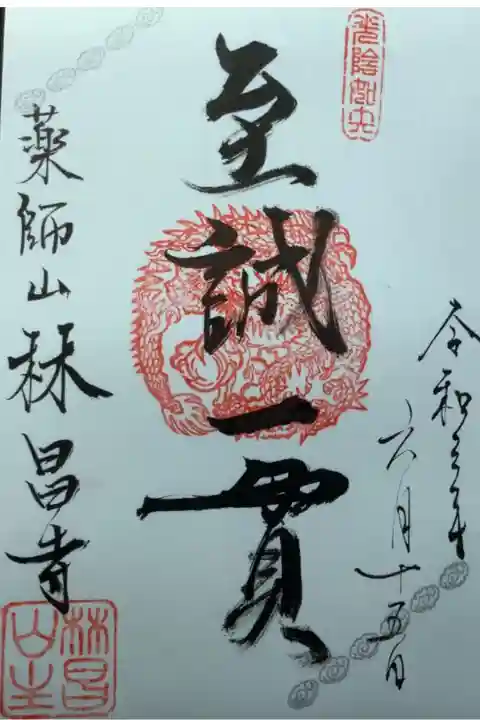 光陰如矢
令和三年
六月十五日
至誠一貫
薬師山林昌寺
林昌山主